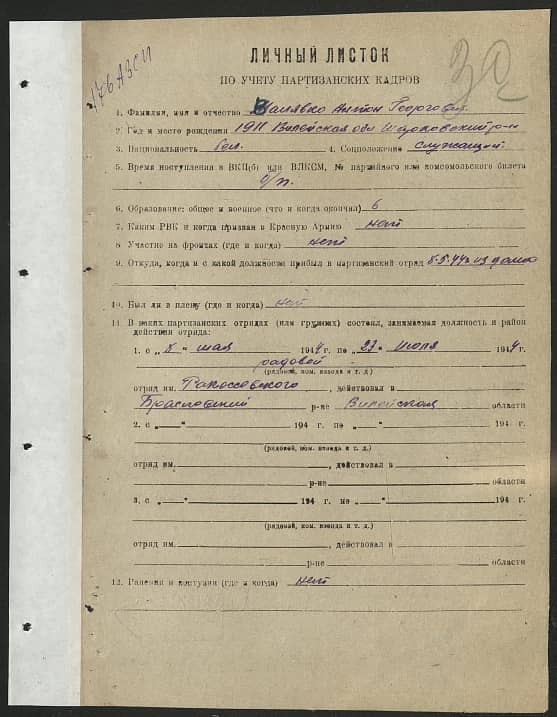 176 АЗСП
30
ЛИЧНЫЙ ЛИСТОК
ПО УЧЕТУ ПАРТИЗАНСКИХ КАДРОВ
1. Фамилия, имя и отчество Антон Георгович
2. Год и место рождения 1911 Вилейская обл
3. Национальность бел. 4. Соцположение служащий
5. Время поступления в ВКП(б) или ВЛКСМ, № партийного или комсомольского билета
б/п.
6. Образование: общее и военное (что и когда окончил) 6
7. Каким РВК и когда призван в Красную Армию нет
8 Участие на фронтах (где и когда) нет
9. Откуда, когда и с какой должностью прибыл в партизанский отряд 8.5.44г из дома
10. Был ли в плену (где и когда) нет
11. В каких партизанских отрядах (или группах) состоял, занимаемая должность и район
действия отряда:
1. с „8“ мая 1944 г. по „23“ июля 1944 г.
рядовой
(рядовой, ком. взвода и т. д.)
отряд им. Рокоссовского, действовал в
Браславский р-не Вилейская области
2. с „ “ 194 г. по „ “ 194 г.
(рядовой, ком. взвода и т. д.)
отряд им. , действовал в
р-не области
3. с „ “ 194 г. по „ “ 194 г.
(рядовой, ком. взвода и т. д.)
отряд им. , действовал в
р-не области
12. Ранения и контузии (где и когда) нет